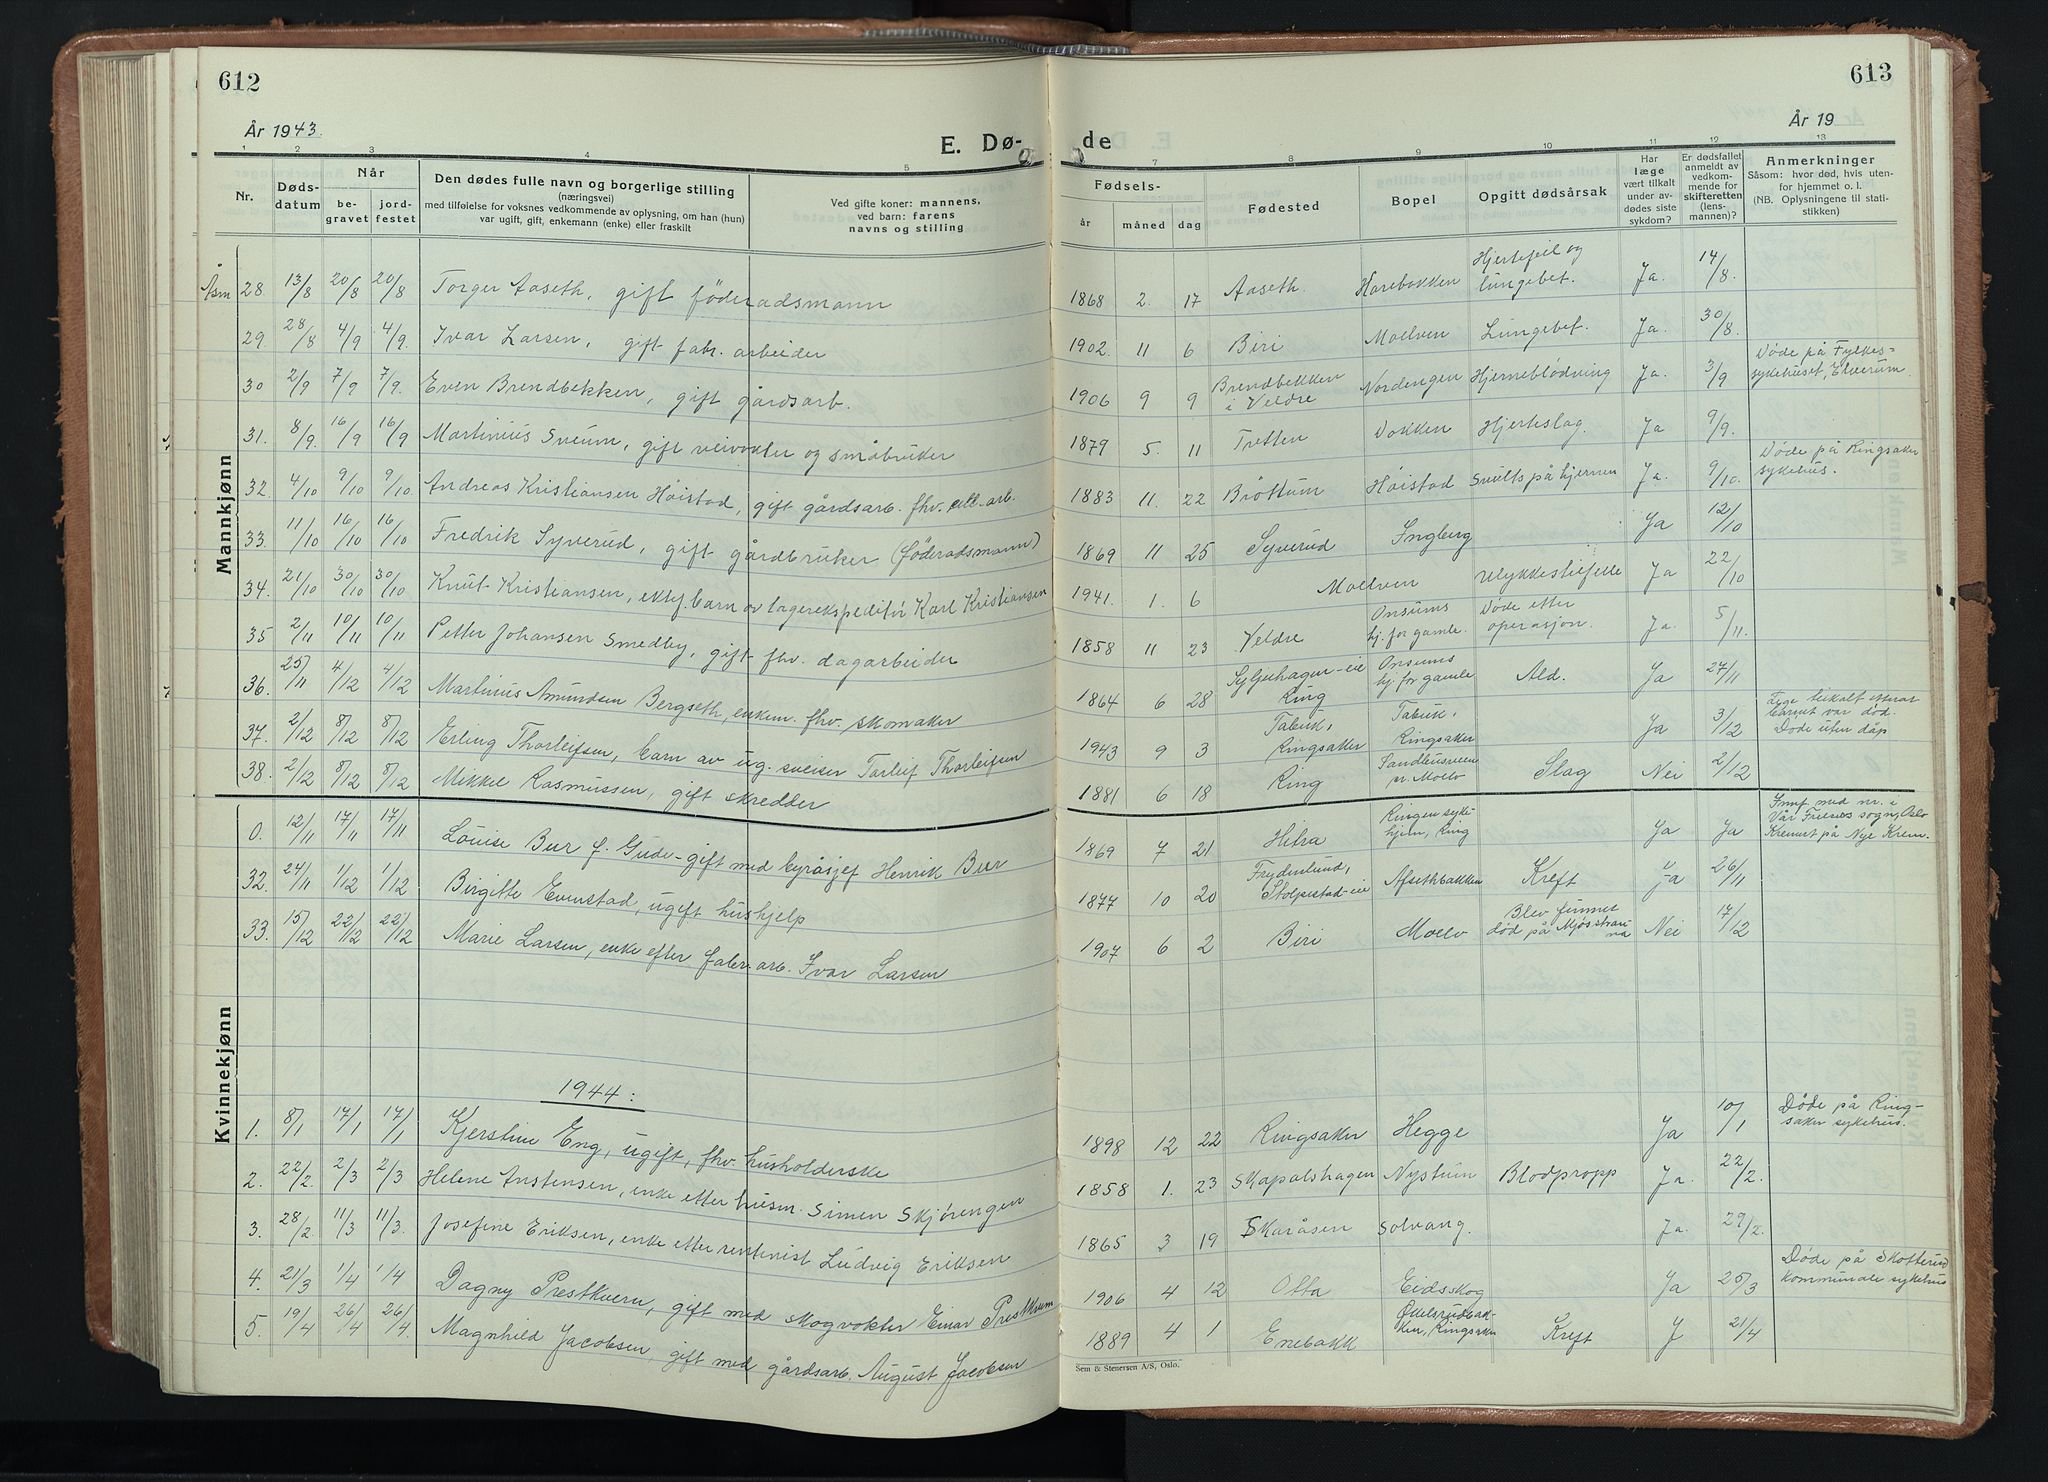 612
År 1943.
E. Dø-
1 2 3 4 5
Nr.
Døds-
datum
Når
be-
gravet
jord-
festet
Den dødes fulle navn og borgerlige stilling
(næringsvei)
med tilføielse for voksnes vedkommende av oplysning, om han (hun)
var ugift, gift, enkemann (enke) eller fraskilt
Ved gifte koner: mannens,
ved barn: farens
navns og stilling
Mannkjønn
28. 13/8 20/8 20/8 Torger Aaseth, gift føderadsmann
29. 28/8 4/9 4/9. Ivar Larsen, gift fabr. arbeider
30 2/9 7/9 7/9. Even Brendbekken, gift gårdsarb.
31. 8/9. 16/9 16/9 Martinius Sveum, gift veivokter og småbruker
32. 4/10 9/10 9/10 Andreas Kristiansen Høistad, gift gårdsarb. fhv. cell. arb.
33. 11/10 16/10 16/10 Fredrik Syverud, gift gårdbruker (føderadsmann)
34. 21/10 30/10 30/10 Knut Kristiansen, ektef. barn av lagerekspeditør Karl Kristiansen
35 2/11 10/11 10/11 Petter Johansen Smedby, gift fhv. dagarbeider
36. 25/11 4/12 4/12 Martinius Amundsen Bergseth, enkem. fhv. skomaker
37. 2/12 8/12 8/12 Erling Thorleifsen, barn av ug. sveiser Torleif Thorleifsen
38. 2/12 8/12 8/12 Mikkel Rasmussen, gift skredder
Kvinnekjønn
0. 12/11 17/11 17/11 Louise Bur f. Gude - gift med byråsjef Henrik Bur
32. 24/11 1/12 1/12 Birgitte Evenstad, ugift hushjelp
33. 15/12 22/12 22/12 Marie Larsen, enke efter fabr. arb. Ivar Larsen
1944:
1. 8/1 17/1 17/1 Kjerstine Eng, ugift, fhv. husholderske
2. 22/2. 2/3 2/3 Helene Anstensen, enke etter husm. Simen Skjørengen
3. 28/2 11/3 11/3. Josefine Eriksen, enke etter rentenist Ludvig Eriksen
4. 21/3 1/4 1/4 Dagny Prestkvern, gift med skogvokter Einar Prestkvern
5. 19/4 26/4 26/4 Magnhild Jacobsen, gift med gårdsarb. August Jacobsen
613
de
År 19
7 8 9 10 11 12 13
Fødsels-
år måned dag
Fødested
Bopel
Opgitt dødsårsak
Har
læge
vært tilkalt
under av-
dødes siste
sykdom?
Er dødsfallet
anmeldt av
vedkom-
mende for
skifteretten
(lens-
mannen)?
Anmerkninger
Såsom: hvor død, hvis uten-
for hjemmet o. l.
(NB. Oplysningene til stati-
stikken)
1868 2. 17 Aaseth. Harebakken Hjertefeil og
lungebet. Ja. 14/8.
1902. 11 6 Biri Moelven Lungebet. Ja. 30/8.
1906 9 9 Brendbekken
i Veldre Nordengen Hjerneblødning Ja. 3/9 Døde på Fylkes-
sykehuset, Elverum.
1879 5. 11 Tretten Dokken Hjerteslag. Ja 9/9.
1883 11. 22 Brøttum Høistad Svulst på hjernen Ja. 9/10. Døde på Ringsaker
sykehus.
1869 11 25 Syverud Ingberg Ja 12/10
1941. 1. 6 Moelven Ulykkestilfelle Ja 22/10
1858 11 23 Veldre Onsums
hj. for gamle. Døde etter
operasjon. Ja. 5/11.
1864 6 28 Syljuhagen-eie
Ring Onsums
hj. for gamle Ald. Ja 27/11
1943 9 3 Tabuk,
Ringsaker Tabuk,
Ringsaker Ja 3/12 Lege tilkalt etterat
barnet var død.
Døde uten dåp
1881 6 18 Ring Sandbusveen
pr. Moelv Slag Nei 2/12
1869 7 21 Hitra Ringen syke
hjem, Ring Ja Ja Innf. med nr. i
Vår Frelsers sogn, Oslo
Kremert på Nye Krem.
1877 10 20 Frydenlund,
Stolpestad-eie Afsethbakken Kreft Ja 26/11
1907 6 2 Biri Moelv Blev funnet
død på Mjøsstran-
da Nei 17/12
1898 12 22 Ringsaker Hegge Ja 10/1 Døde på Ring-
saker sykehus.
1858 1. 23 Skapalshagen Nystuen Blodpropp Ja. 22/2.
1865 3 19 Skaråsen Solvang. Ja. 29/2.
1906 4 12 Otta Eidsskog Ja 25/3 Døde på Skotterud
kommunale sykehus
1889 4 1 Enebakk Økelsrudbak-
ken, Ringsaker Kreft J 21/4
Sem & Stenersen A/S, Oslo.